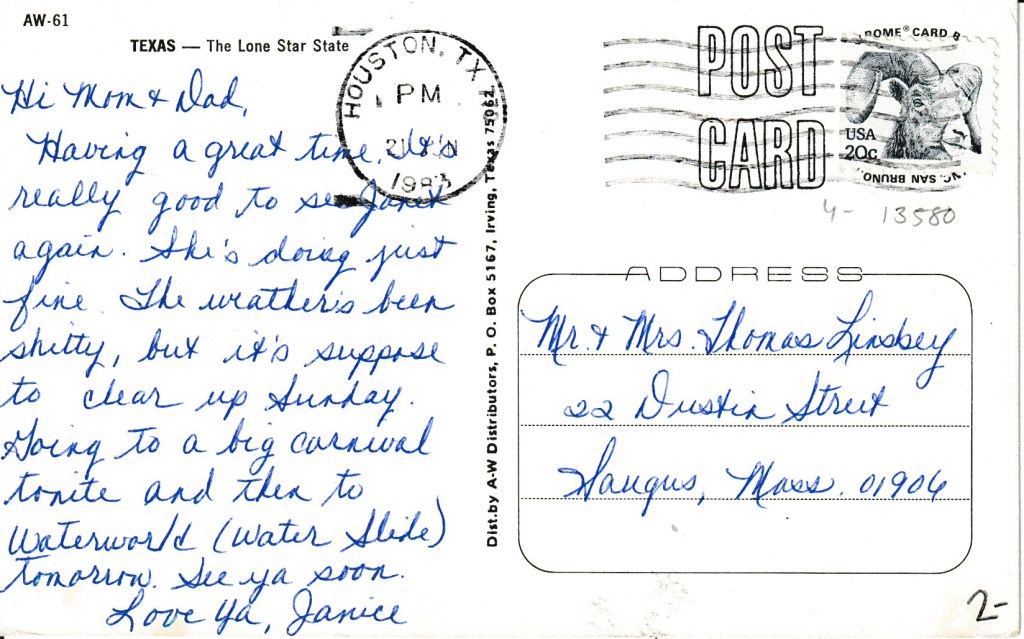 AW-61
TEXAS — The Lone Star State
Hi Mom & Dad,
Having a great time. It's
really good to see Janet
again. She's doing just
fine. The weather's been
shitty, but it's suppose
to clear up Sunday.
Going to a big carnival
tonite and then to
Waterworld (Water Slide)
tomorrow. See ya soon.
Love Ya, Janice
HOUSTON, TX
PM
21
1983
Dist. by A-W Distributors, P. O. Box 5167, Irving, Texas 75062.
POST
CARD
ROME® CARD
USA
20c
SAN BRUNO
4- 13580
ADDRESS
Mr. & Mrs. Thomas Linskey
22 Dustin Street
Saugus, Mass. 01906
2-